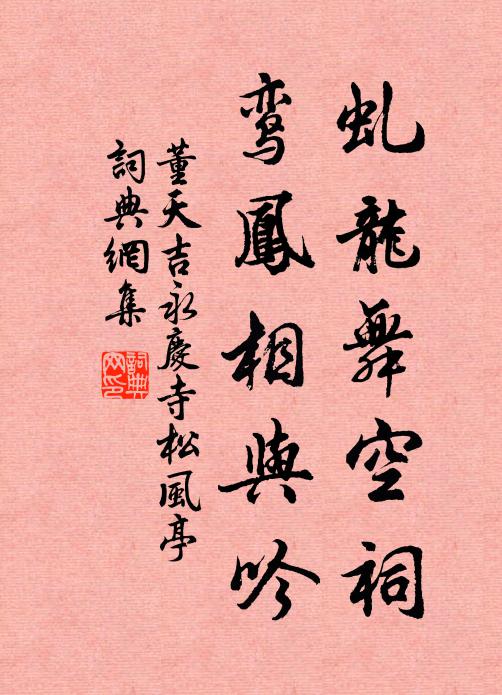 虬龍舞空祠
鸾鳳相與吟
董天吉永慶寺松風亭
詞典網集
詞典網印